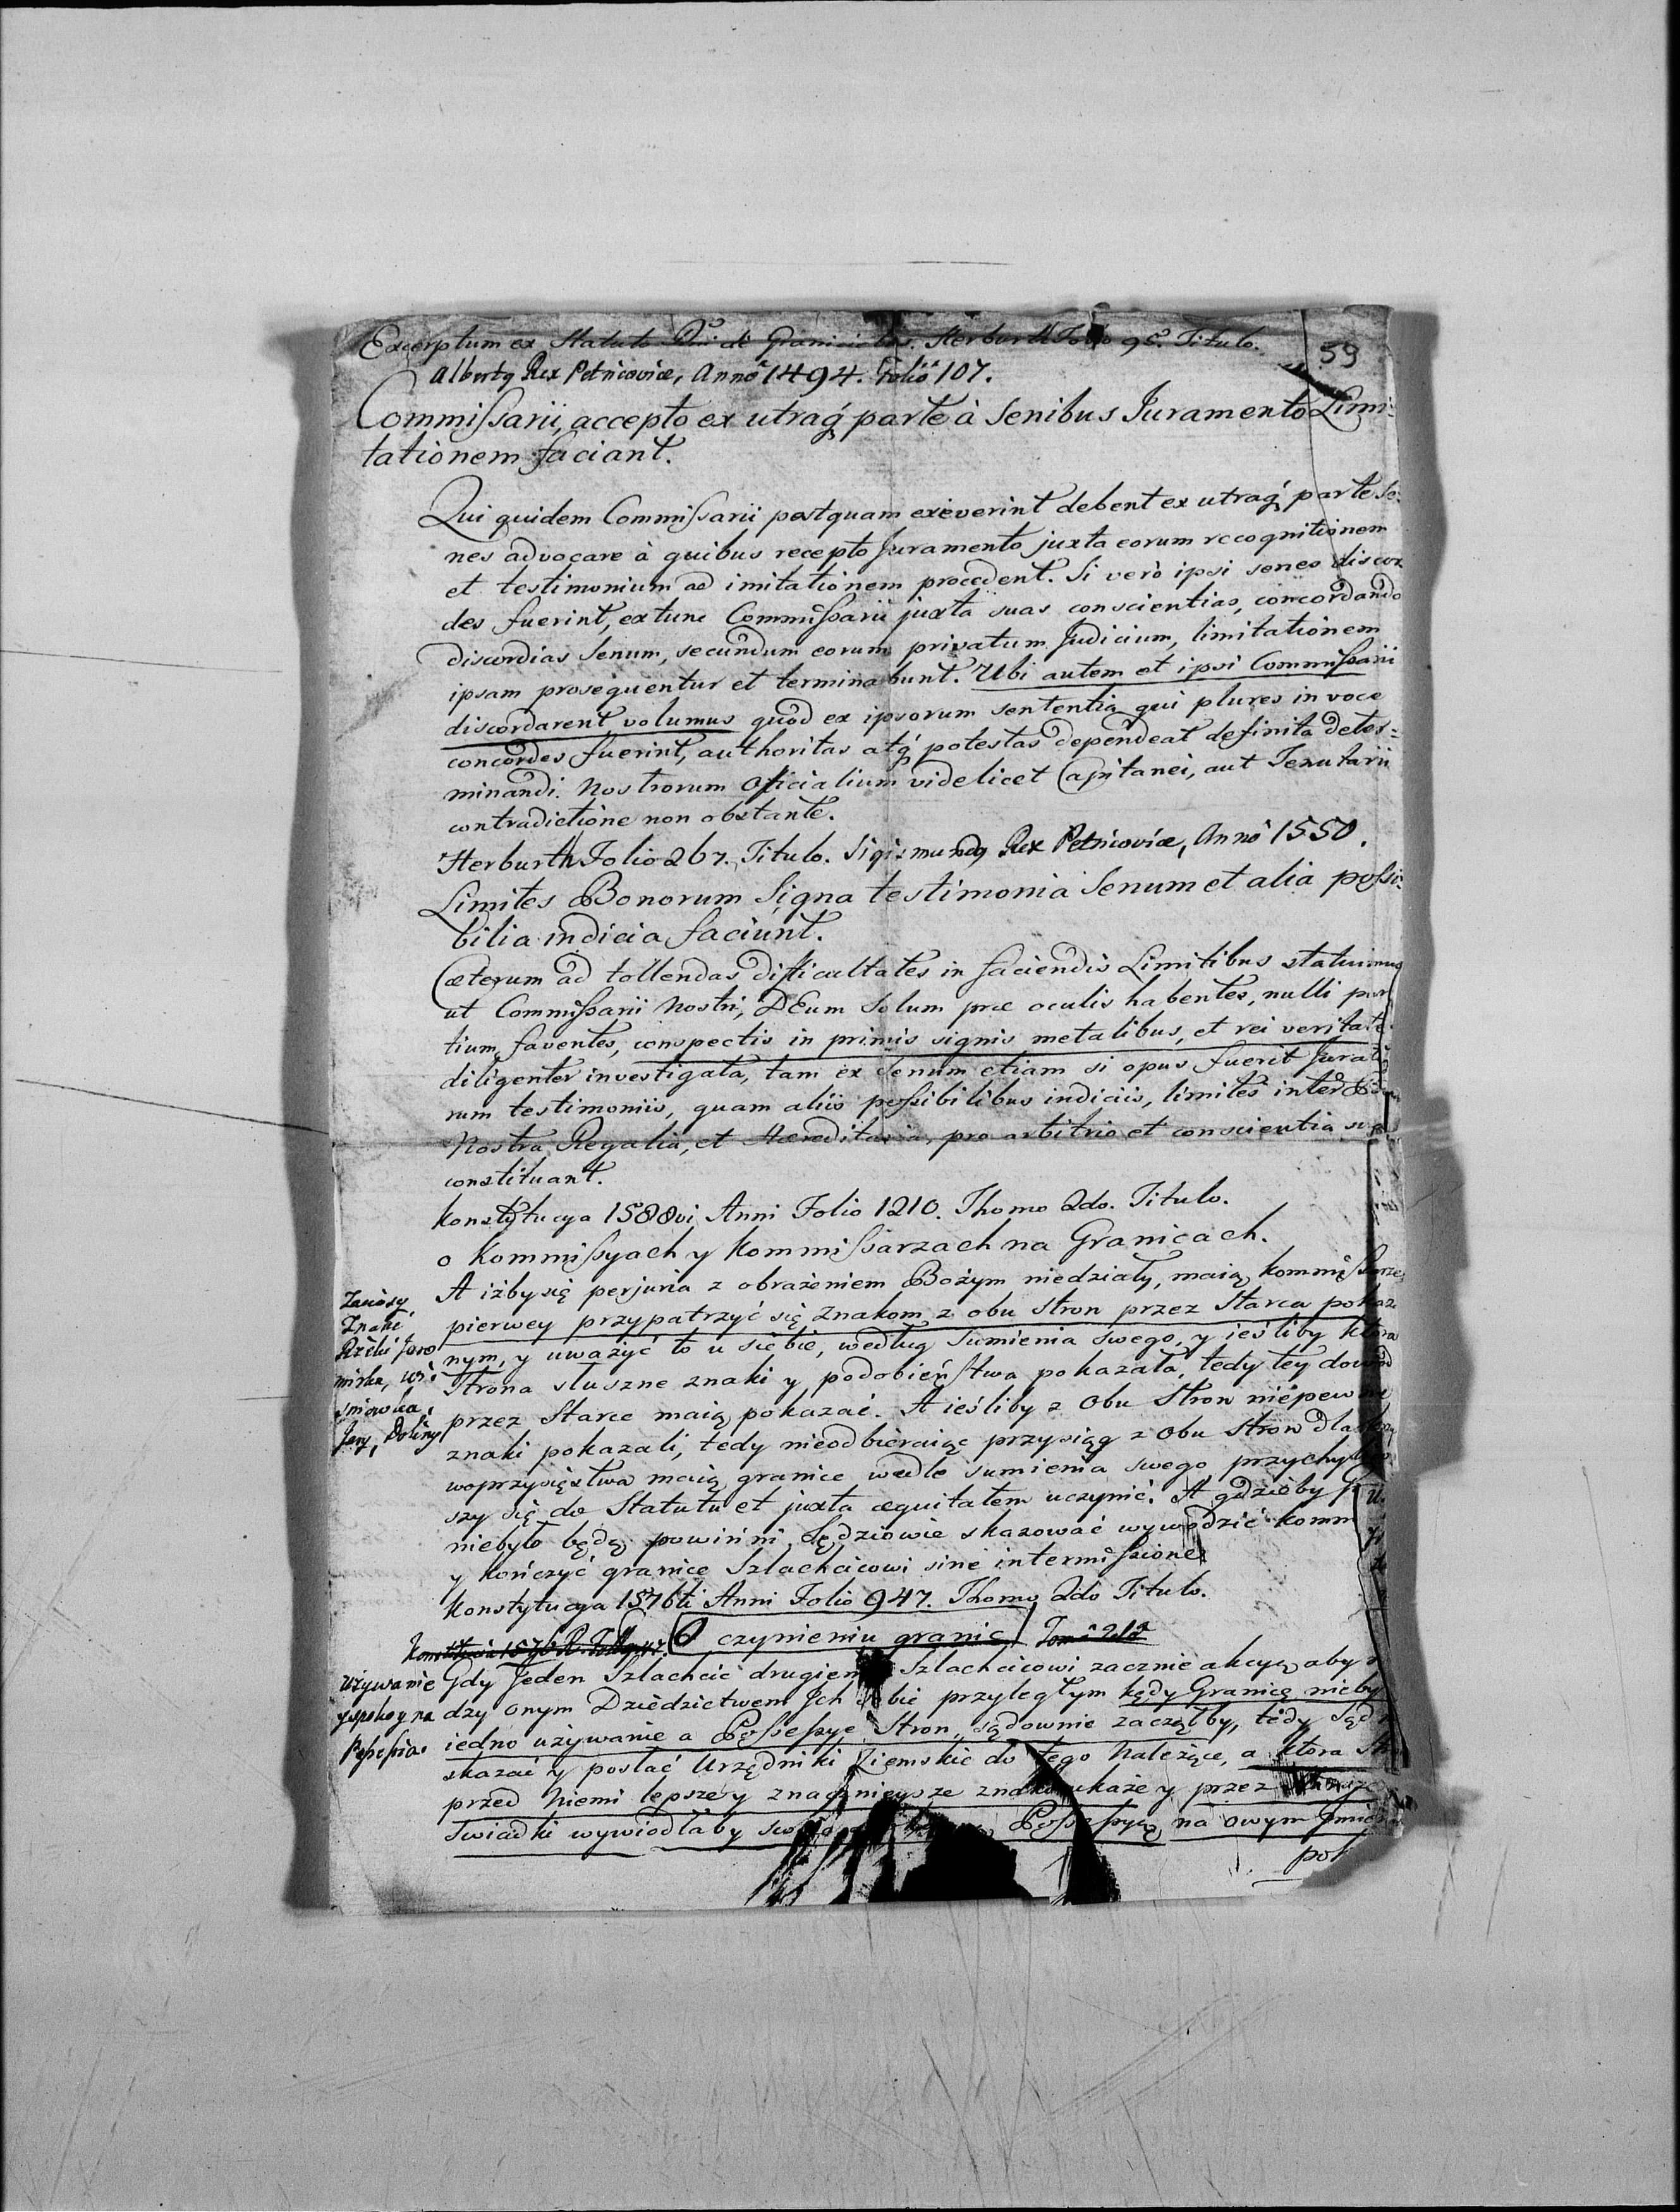 Excerptum ex Statuto de Herburth Folio Titulo.
59
Albertq Rex Petricoviæ, Annô 1494. Foliô 107.
Commissarii, accepto ex utraq́ parte à Senibus Iuramento Limi=
tationem faciant.
Qui quidem Commissarii postquam exeverint debent ex utraq́ parte Se:
nes advocare à quibus recepto Juramento juxta eorum recognitionem
et testimonium ad imitationem procedent. Si verò ipsi senes discor
des fuerint, extunc Commissarii juxta suas conscientias, concordando
discordias Senum, secundum eorum privatum Judicium, limitationem
ipsam prosequentur et terminabunt. Ubi autem et ipsi Commissarii
discordarent volumus quod ex ipsorum sententia qui plures in voce
concordes fuerint, authoritas atq́ potestas dependeat definita deter=
minandi. Nostrorum Officialium videlicet Capitanei, aut Tenutarii
contradictione non obstante.
Herburth Folio 267. Titulo. Sigismundq Rex Petricoviæ, Annô 1550.
Limites Bonorum Signa testimonia Senum et alia possi=
bilia indicia faciunt.
Cæterum ad tollendas difficultates in faciendis Limitibus statuimus
ut Commissarii Nostri, DEum Solum præ oculis habentes, nulli par
tium faventes, conspectis in primis signis metalibus, et rei veritate
diligenter investigata, tam ex Senum etiam si opus fuerit Jurato
rum testimoniis, quam aliis possibilibus indiciis, limites inter
Nostra Regalia, et Hæreditaria, pro arbitrio et conscientia sua
constituant.
Konstytucya 1588vi Anni Folio 1210. Thomo 2do. Titulo.
o Kommissyach y Kommissarzach na Granicach.
A iżby się perjuria z obrażeniem Bożym niedziały, maią Kommissarze
pierwey przypatrzyć się znakom z obu stron przez Starca pokaza
nym, y uważyć to u siebie, według Sumienia swego, y ieśliby ktora
Strona słuszne znaki y podobieństwa pokazała, tedy tey dowod
przez Starce maią pokazać. A ieśliby z Obu Stron niepewne
znaki pokazali, tedy nieodbieraiąc przysiąg z Obu Stron dla krzy
woprzysięstwa maią granice wedle sumienia swego przychyliw
szy się do Statutu et juxta æquitatem uczynić. A gdzieby
niebyło będą powinni Sędziowie skazować wywodzić komm
y kończyć granice Szlachcicowi sine intermissione
Zaciosy
Znaki
mirka,
Jary, Doliny
Konstytucya 1576ti Anni Folio 947. Thomo 2do Titulo.
O czynieniu granic Tomo 2do
Gdy Jeden Szlachcic drugiemu Szlachcicowi zacznie akcyą aby
dzy onym Dziedzictwem Ich sobie przyległym kędy Granicę nieby
iedno używanie a Possessye Stron, sądownie zaczęłby, tedy Sęd
skazać y posłać Urzędniki Ziemskie do tego należące, a ktora Str
przed niemi lepsze y znacznieysze znaki ukaże y przez
Swiadki wywiodłaby Possessyą na owym
używanie
y spokoyna
Possessia.
po